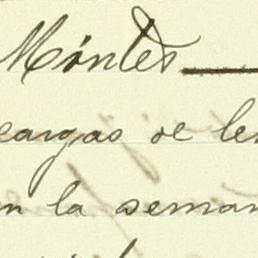 Móntes
cargas de le
n la seman